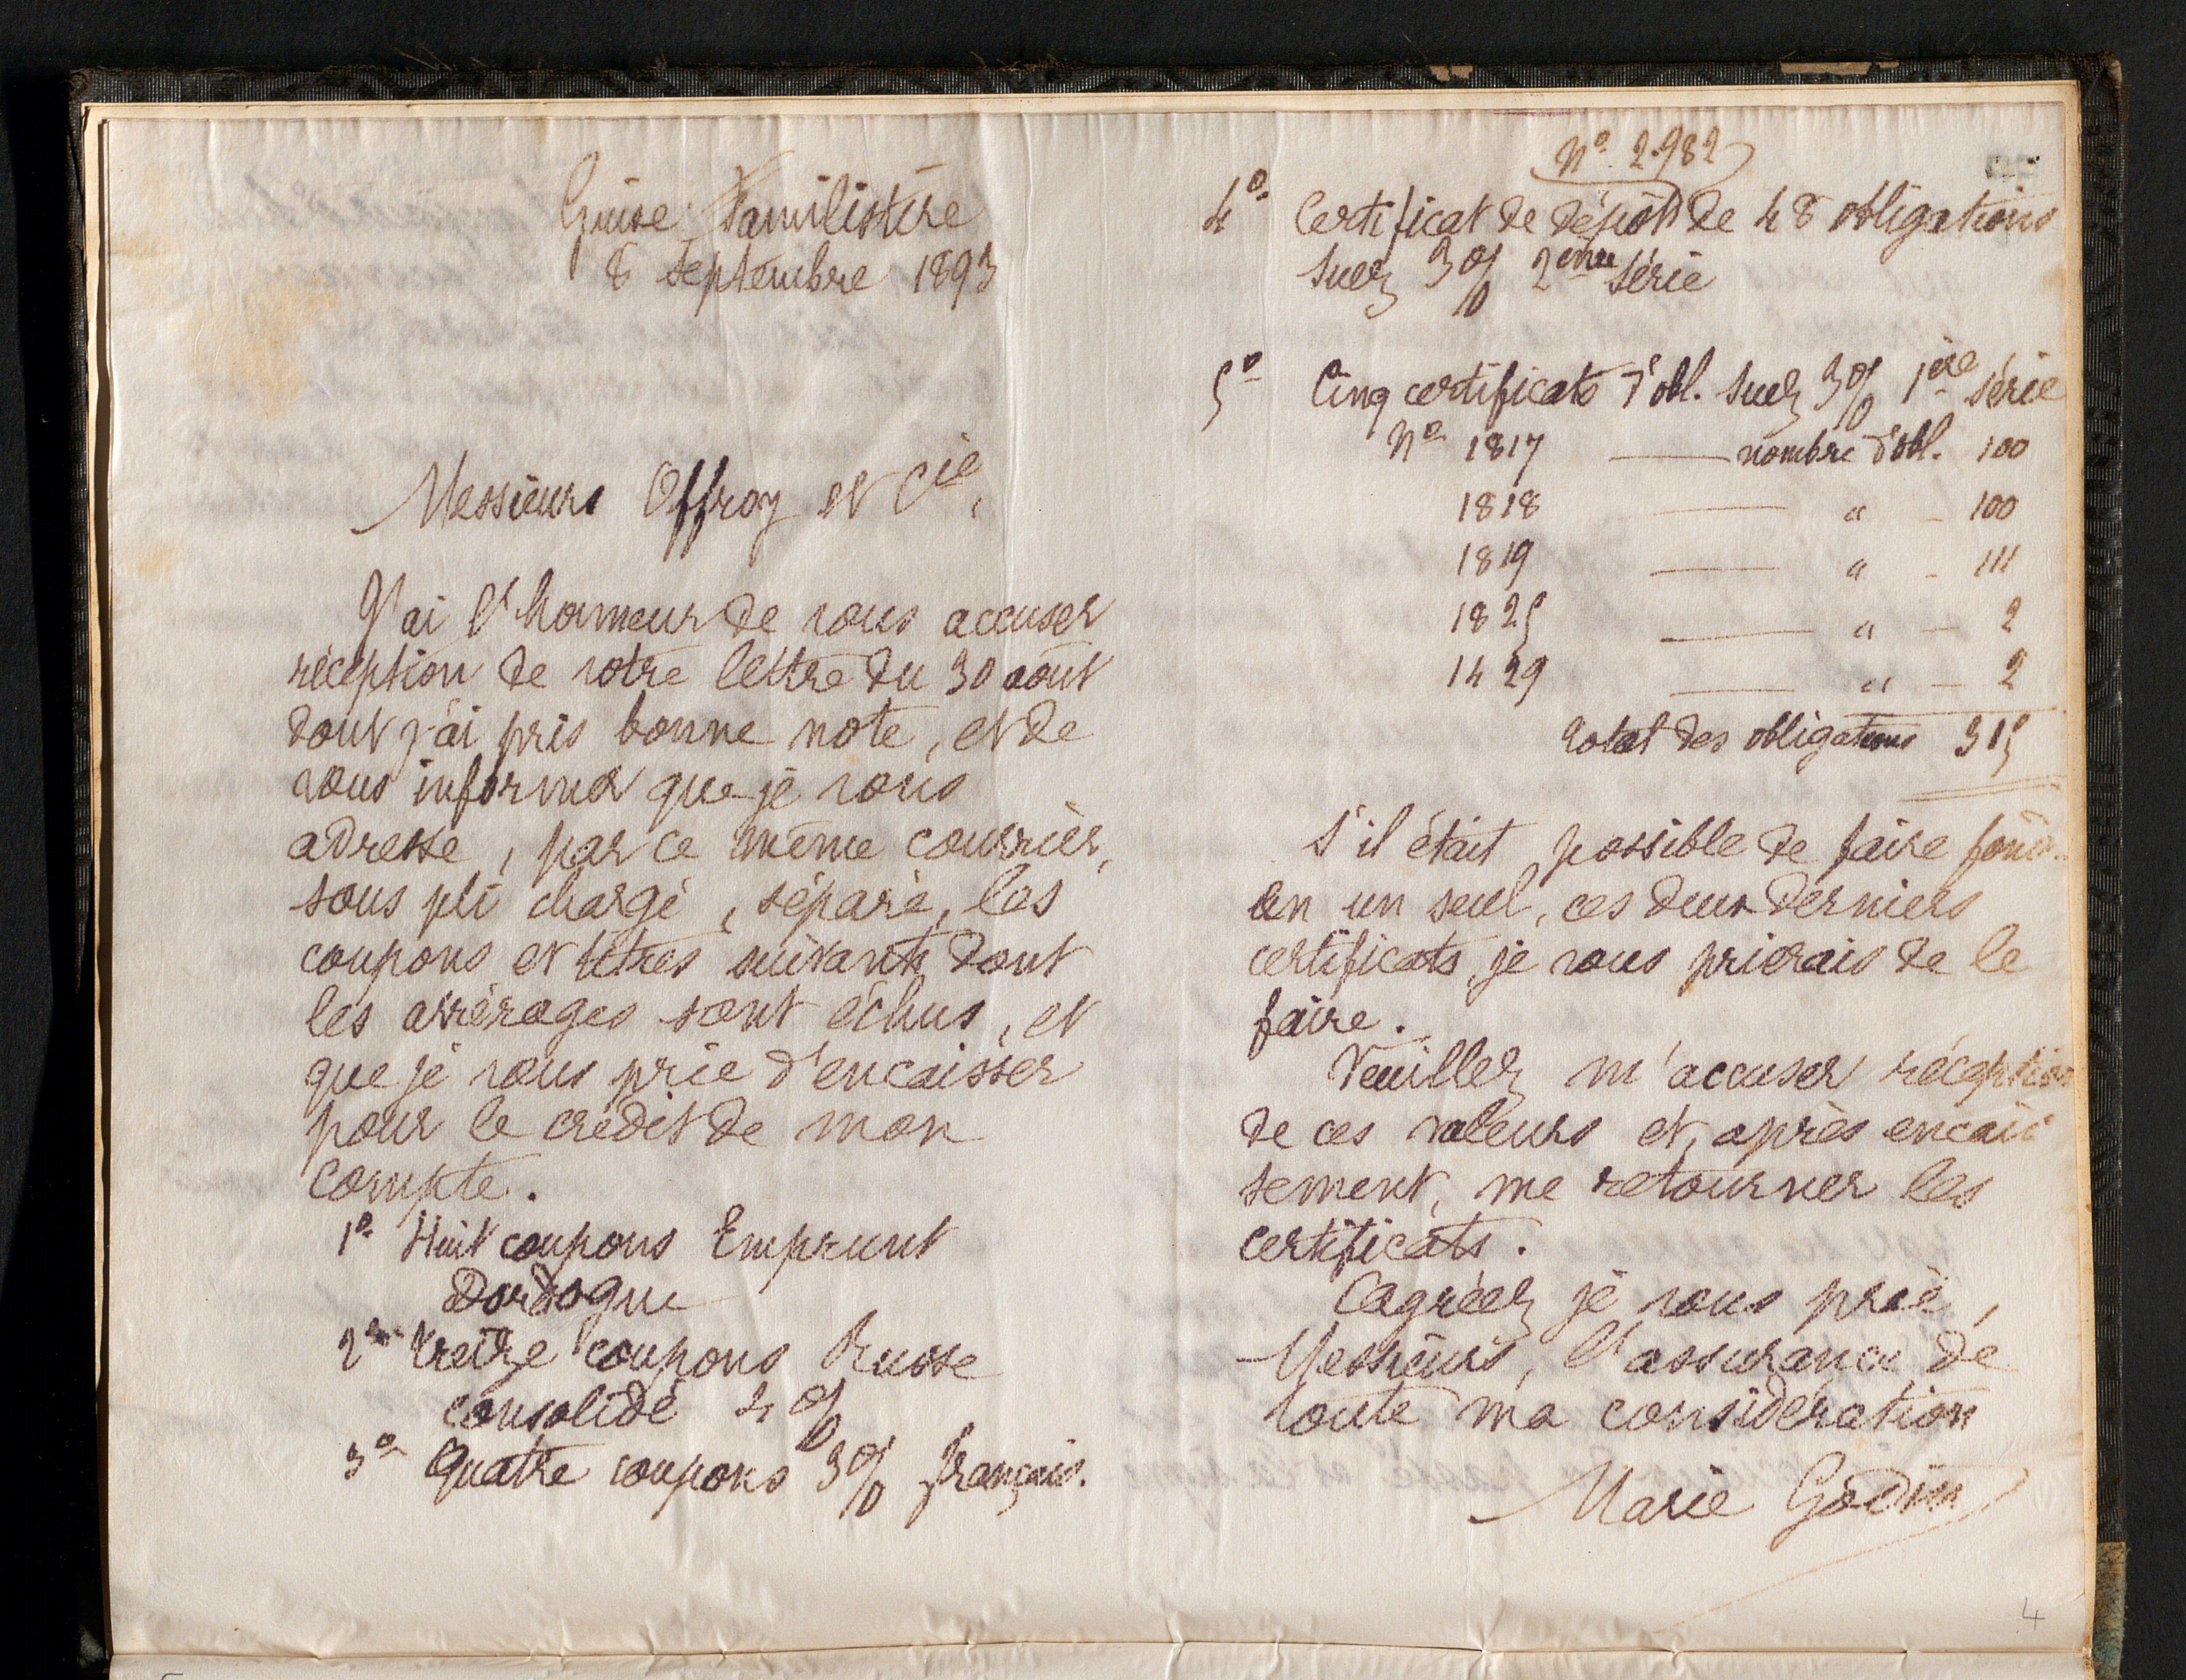 Guise Familistère
8 septembre 1893
Messieurs Offroy et Cie,
J'ai l'honneur de vous accuser
réception de votre lettre du 30 août
dont j'ai pris bonne note, et de
vous informer que je vous
adresse, par ce même courrier,
sous pli chargé, séparé, les
coupons et titres suivants dont
les arrérages sont échus, et
que je vous prie d'encaisser
pour le crédit de mon
compte.
1º Huit coupons Emprunt
Dordogne
2º Treize coupons Russe
consolidé 4 %
3º Quatre coupons 3 % français.
Nº 2.982
4º Certificat de dépôt de 48 obligations
Suez 3 % 2ème série
5º Cinq certificats d'obl. Suez 3 % 1ère série
Nº 1817 — nombre d'obl. 100
1818 — " — 100
1819 — " — 111
1825 — " — 2
1429 — " — 2
total des obligations 315
S'il était possible de faire
en un seul, ces deux derniers
certificats, je vous prierais de le
faire.
Veuillez m'accuser réception
de ces valeurs et, après encais
sement, me retourner les
certificats.
Agréez je vous prie,
Messieurs, l'assurance de
toute ma considération
Marie Godin
4